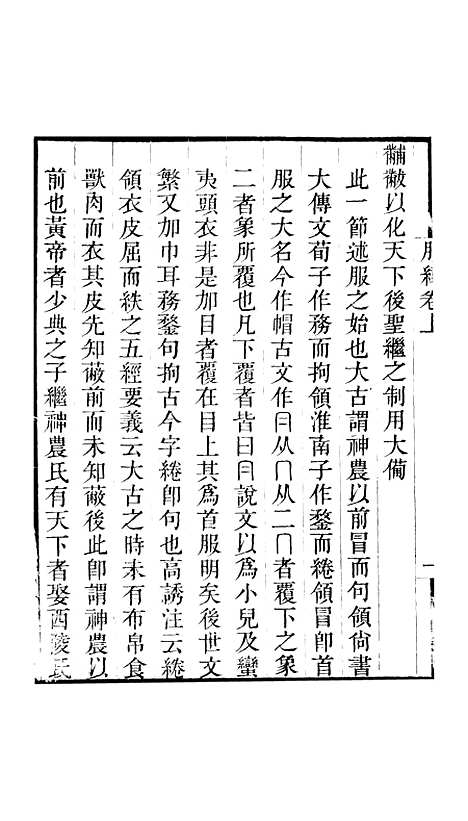 服經卷上
一
黼黻以化天下後聖繼之制用大備
此一節述服之始也大古謂神農以前冒而句領尙書
大傳文荀子作務而拘領淮南子作鍪而綣領冒卽首
服之大名今作帽古文作冃从冂从二冂者覆下之象
二者象所覆也凡下覆者皆曰冃說文以爲小兒及蠻
夷頭衣非是加目者覆在目上其爲首服明矣後世文
繁又加巾耳務鍪句拘古今字綣卽句也高誘注云綣
領衣皮屈而紩之五經要義云大古之時未有布帛食
獸肉而衣其皮先知蔽前而未知蔽後此卽謂神農以
前也黃帝者少典之子繼神農氏有天下者娶西陵氏